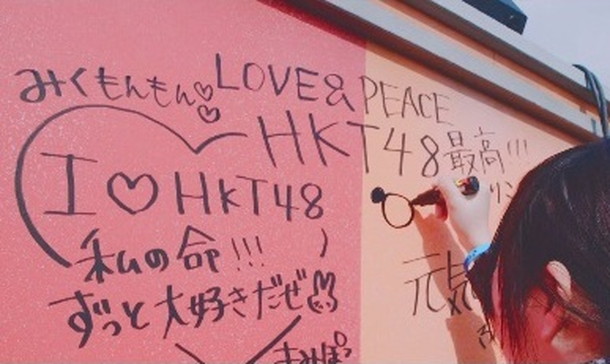 みくもんもん♡♡ LOVE & PEACE
HKT48最高!!!
I ♡ HKT48
私の命!!!
ずっと大好きだぜ
元気
きみぽっ